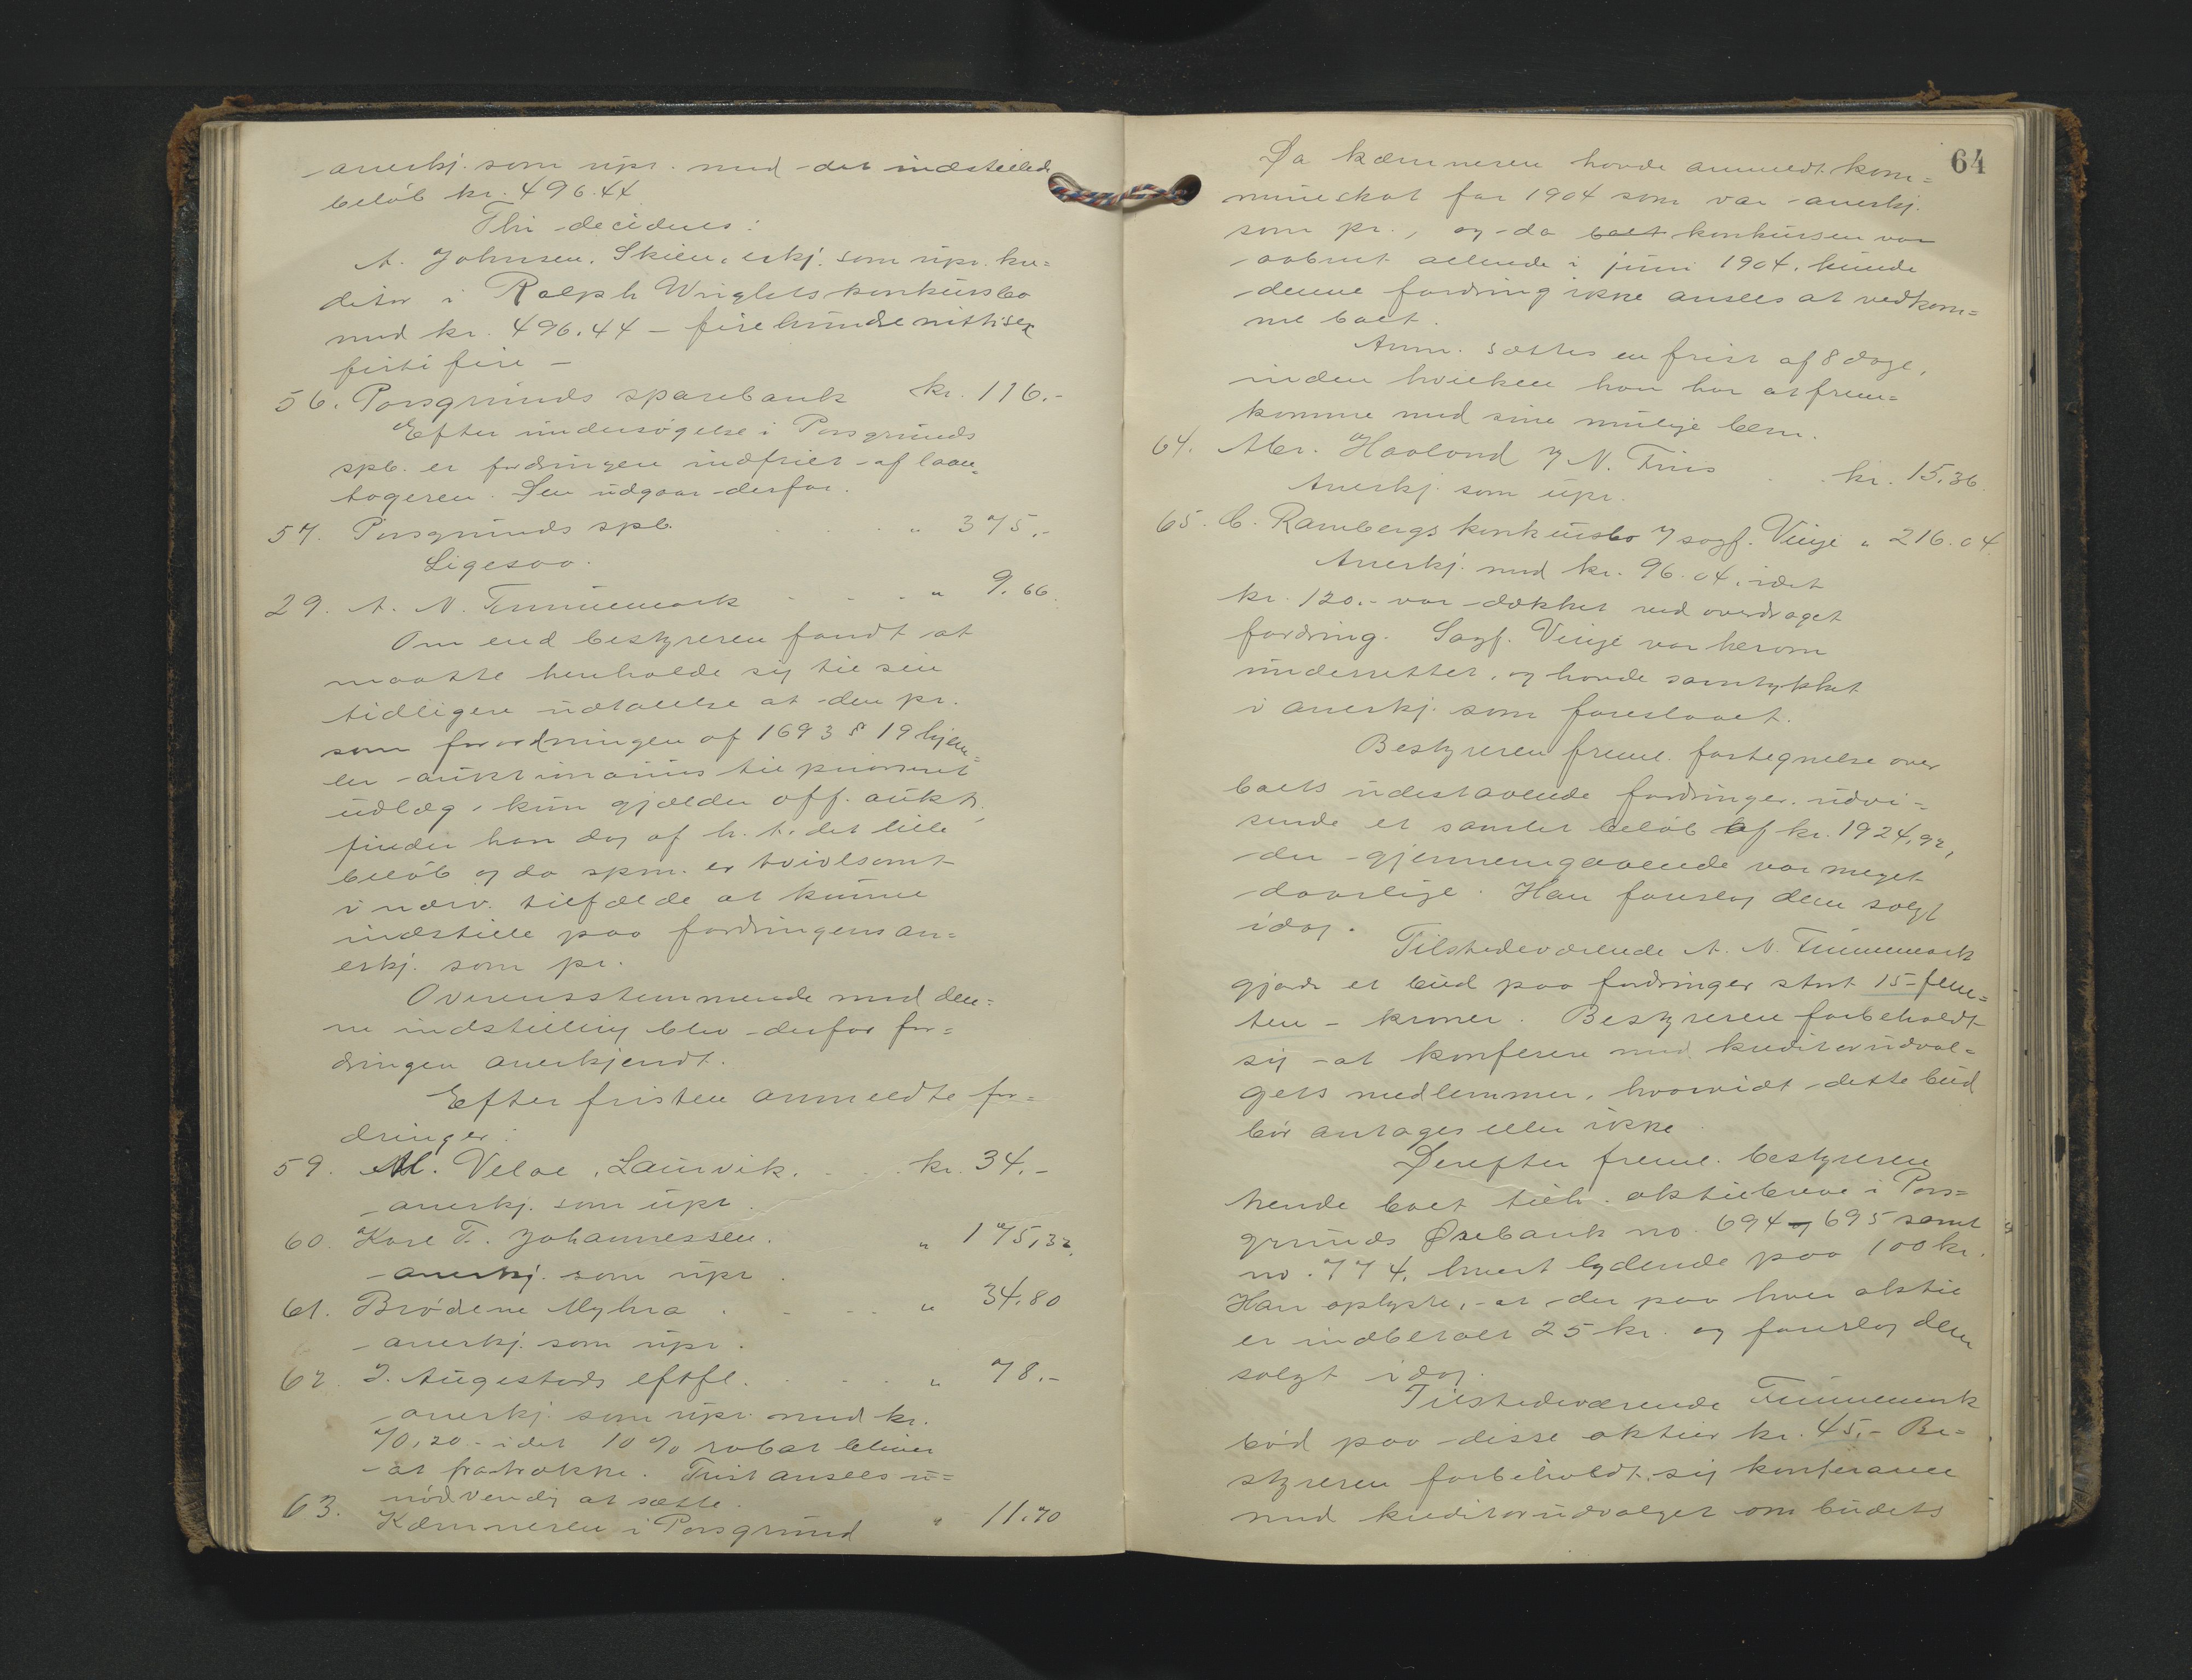 anerkj. som upr. med det indstillede
beløb kr. 496.44
Thi decideres:
A. Johnsen, Skien, erkj. som upr. kre=
ditor i Ralph Wrights konkursbo
med kr. 496.44 – firehundrenittisex
firtifire –
56. Porsgrunds sparebank kr. 116.-
Efter undersøgelse i Porsgrunds
spb. er fordringen indfriet af laan=
tageren. Den udgaar derfor.
57. Porsgrunds spb. . . . " 375.-
Ligesaa.
29. A. N. Funnemark . . . " 9.66.
Om end bestyreren fandt at
maatte henholde sig til sin
tidligere udtalelse at den pr.
som forordningen af 1693 § 19 hjem=
ler auktionarius til primært
udlæg, kun gjælder off. aukt.,
finder han dog af h. t. det lille
beløb og da spm. er tvivlsomt
i nærv. tilfælde at kunne
indstille paa fordringens an=
erkj. som pr.
Overensstemmende med den=
ne indstilling blev derfor for=
dringen anerkjendt.
Efter fristen anmeldte for=
dringer:
59. M. Veloe, Laurvik. . . . kr. 34.-
anerkj. som upr.
60. Karl T. Johannessen. " 175,32.
anerkj. som upr.
61. Brødrene Myhra . . . . " 34.80
anerkj. som upr.
62. J. Augestads eftfl. . . . " 78.-
anerkj. som upr. med kr.
70,20 - idet 10 % rabat bliver
at fratrække. Frist ansees u=
nødvendig at sætte.
63. Kæmneren i Porsgrund " 11.70
64
Da kæmneren havde anmeldt kom=
muneskat for 1904 som var anerkj.
som pr., og da boet konkursen var
aabnet allerede i juni 1904, kunde
denne fordring ikke ansees at vedkom=
me boet.
Anm. sættes en frist af 8 dage,
inden hvilken han har at frem=
komme med sine mulige bem.
64. Abr. Haaland v/ N. Friis . . kr. 15.36.
Anerkj. som upr.
65. C. Rambergs konkursbo v/ sagf. Vinje " 216.04.
Anerkj. med kr. 96.04, idet
kr. 120.- var dækket ved overdraget
fordring. Sagf. Vinje var herom
underrettet, og havde samtykket
i anerkj. som foreslaaet.
Bestyreren freml. fortegnelse over
boets udestaaende fordringer, udvi=
sende et samlet beløb af kr. 1924,92,
der gjennemgaaende var meget
daarlige. Han foreslog dem solgt
idag.
Tilstedeværende A. N. Funnemark
gjorde et bud paa fordringer stort 15 – fem=
ten – kroner. Bestyreren forbeholdt
sig at konferere med kreditorudval=
gets medlemmer, hvorvidt dette bud
bør antages eller ikke.
Derefter freml. bestyreren
trende boet tilh. aktiebreve i Pors=
grunds Ørebank no. 694 og 695 samt
no. 774, hvert lydende paa 100 kr.
Han oplyste, at der paa hver aktie
er indbetalt 25 kr. og foreslog dem
solgt idag.
Tilstedeværende Funnemark
bød paa disse aktier kr. 45,- Be=
styreren forbeholdt sig konferance
med kreditorudvalget om budets